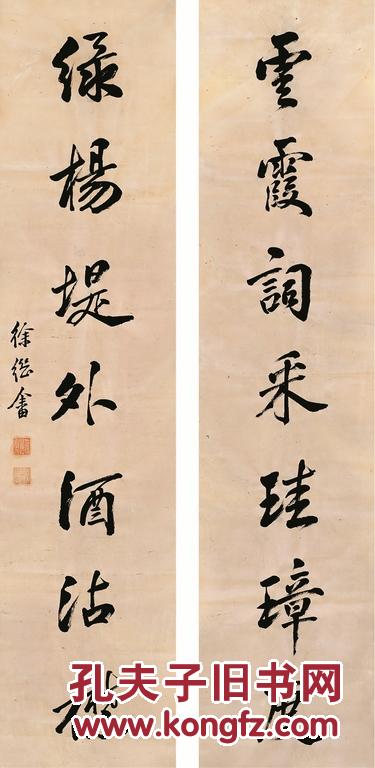 雲霞詞采珪璋
綠楊堤外酒沽
徐繼畬
孔夫子旧书网
www.kongfz.com